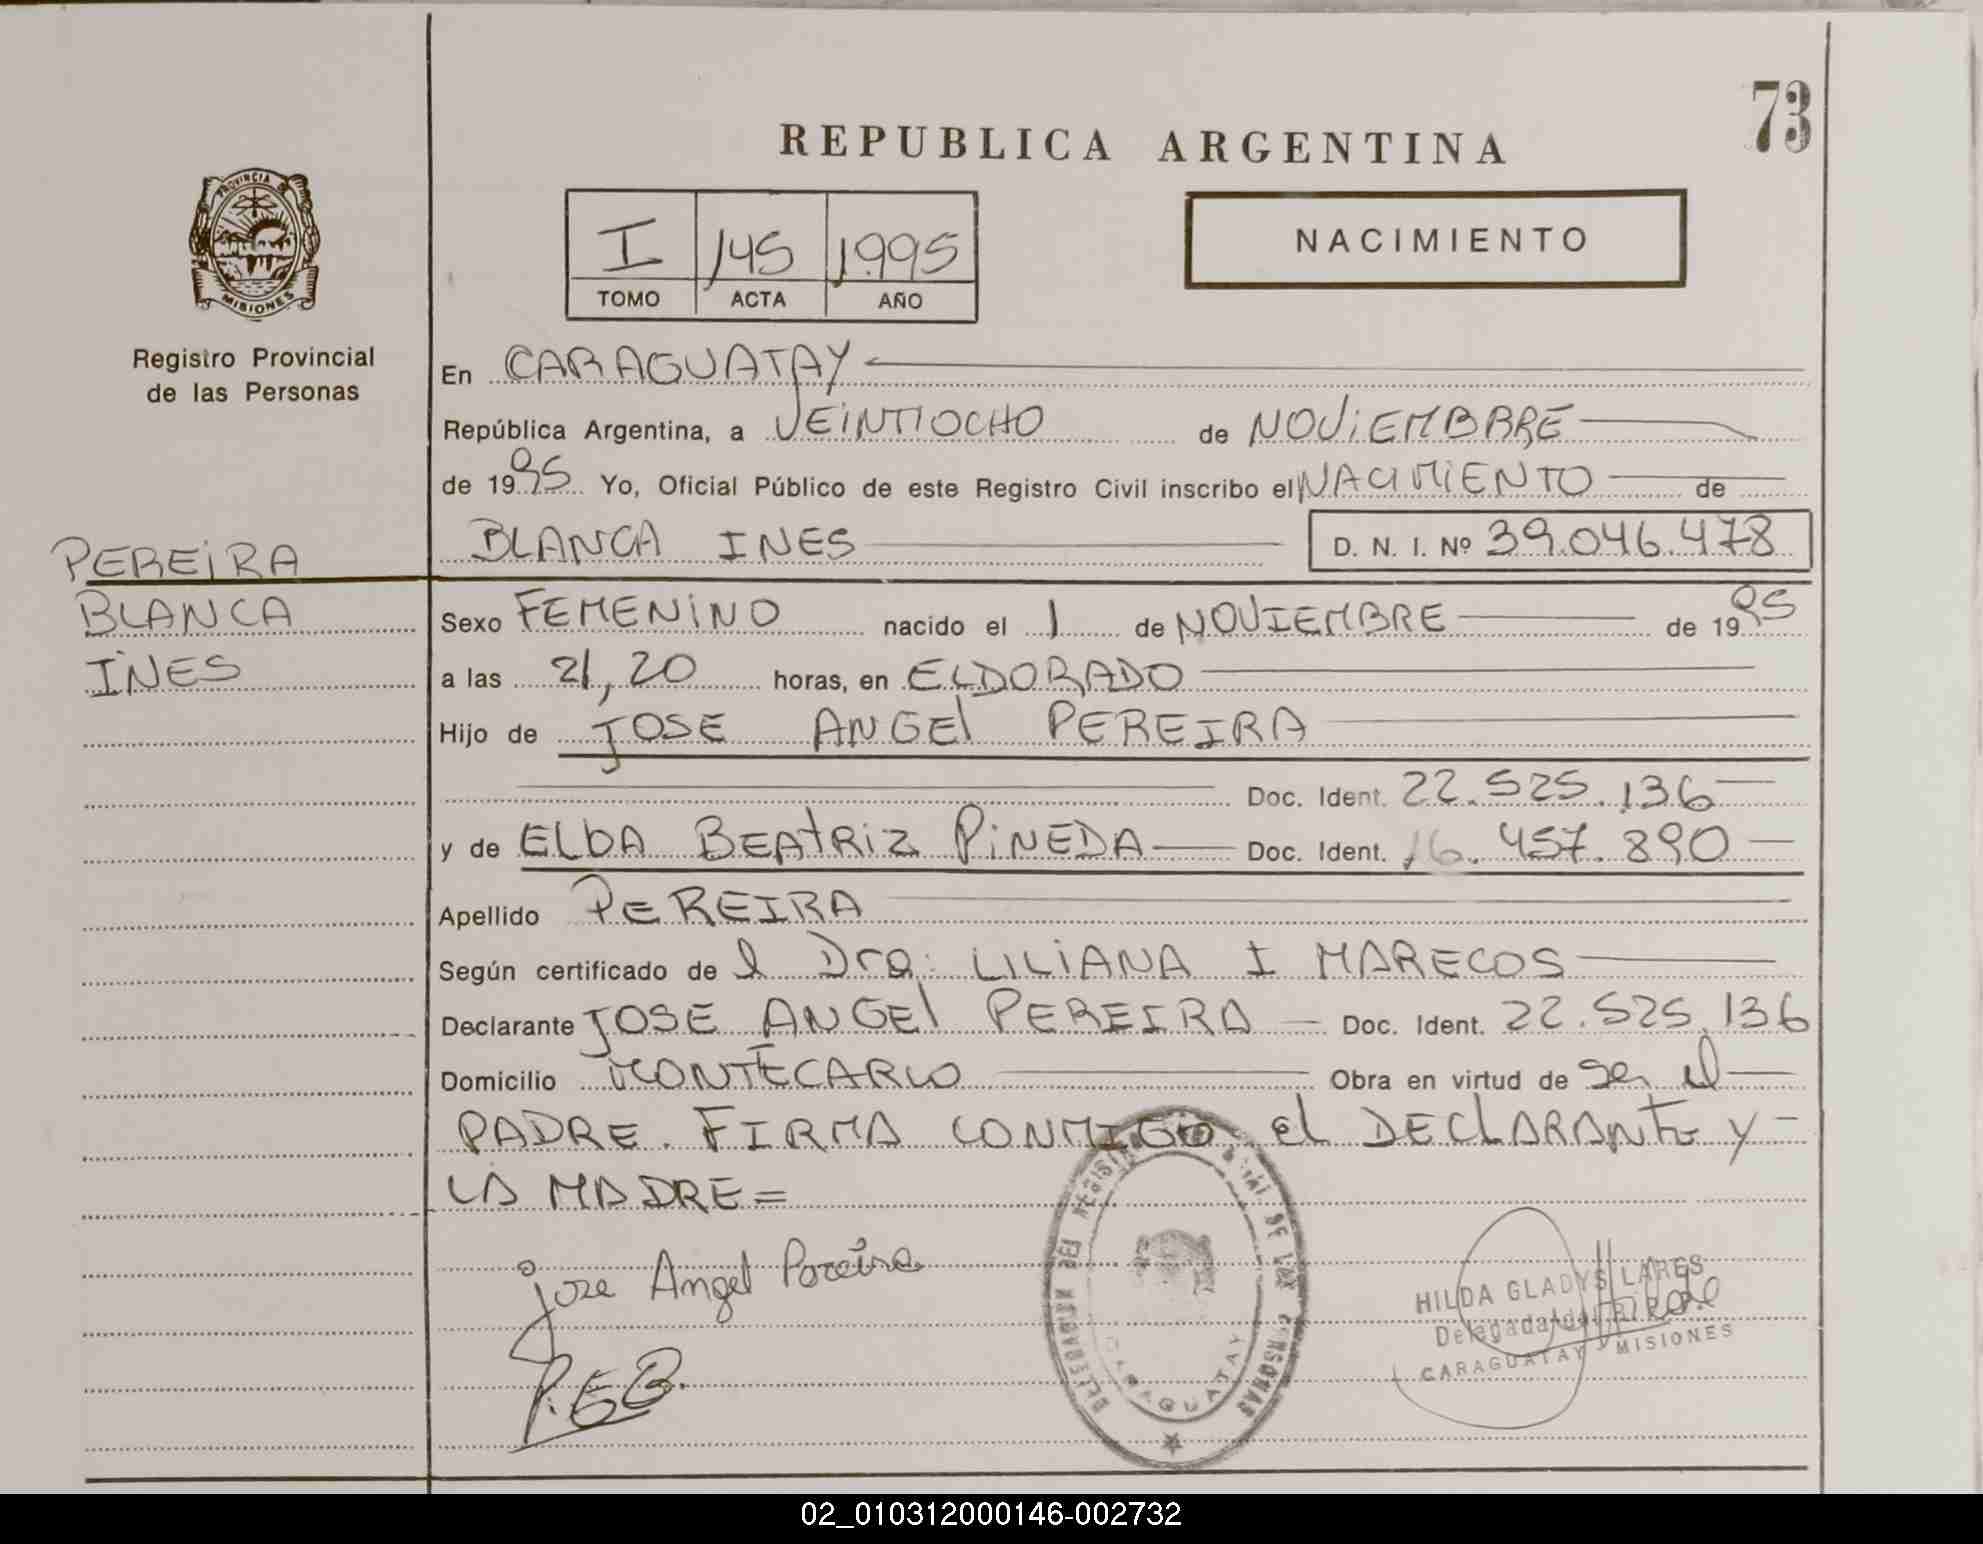 73
REPUBLICA ARGENTINA
PROVINCIA
MISIONES
I 145 1995
TOMO ACTA AÑO
NACIMIENTO
Registro Provincial
de las Personas
En CARAGUATAY
República Argentina, a VEINTIOCHO de NOViEMBBRE
de 1995 Yo, Oficial Público de este Registro Civil inscribo el NACIMIENTO de
BLANCA INES D. N. I. Nº 39.046.478
PEREiRA
BLANCA
INES
Sexo FEMENiNO nacido el 1 de NOVIEMBRE de 1995
a las 21,20 horas, en ELDORADO
Hijo de JOSE ANGEl PEREIRA
Doc. Ident. 22.525.136
y de ELbA BEAtRiz PiNEDA Doc. Ident. 16.457.890
Apellido PEREIRA
Según certificado de l Dra: LILIANA I MARECOS
Declarante JOSE ANGEl PEREIRA Doc. Ident. 22.525.136
Domicilio MONTECARLO Obra en virtud de ser el
PADRE. FIRMA CONMIGO el DEClARANte y
LA MADRE=
jose Angel Pereira
P.E.B.
DELEGACION DEL REGISTRO PROVINCIAL DE LAS PERSONAS
CARAGUATAY
HILDA GLADYS LARES
Delegada del R.P.P.
CARAGUATAY - MISIONES
02_010312000146-002732